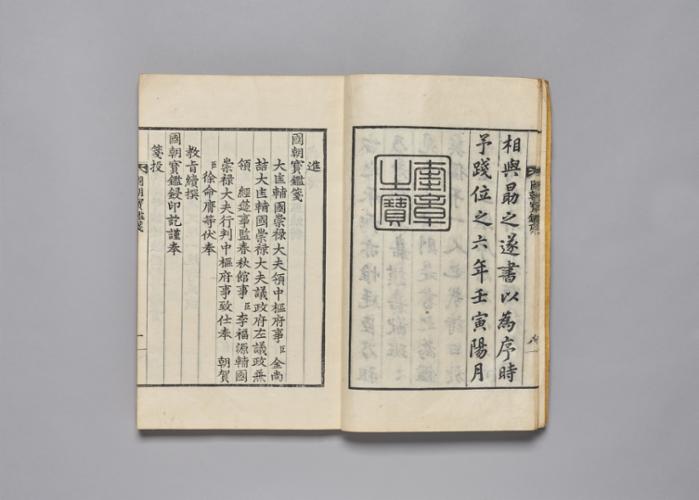 國朝寶鑑序
相與勗之遂書以為序時
予踐位之六年壬寅陽月
奎章
之寶
進
國朝寶鑑箋
大匡輔國崇祿大夫領中樞府事臣金尚
喆大匡輔國崇祿大夫議政府左議政兼
領 經筵事監春秋館事臣李福源輔國
崇祿大夫行判中樞府事致仕奉 朝賀
臣徐命膺等伏奉
教旨續撰
國朝寶鑑鋟印訖謹奉
箋投
國朝寶鑑箋 一